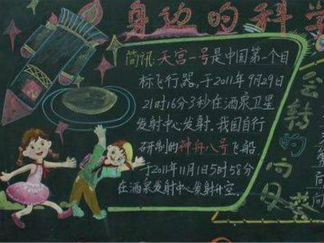 身边的科学
简讯 天宫一号是中国第一个目
标飞行器,于2011年9月29日
21时16分3秒在酒泉卫星
发射中心发射。我国自行
研制的神舟八号飞船,
于2011年11月1日5时58分
在酒泉发射中心发射升空.
会转的向日葵